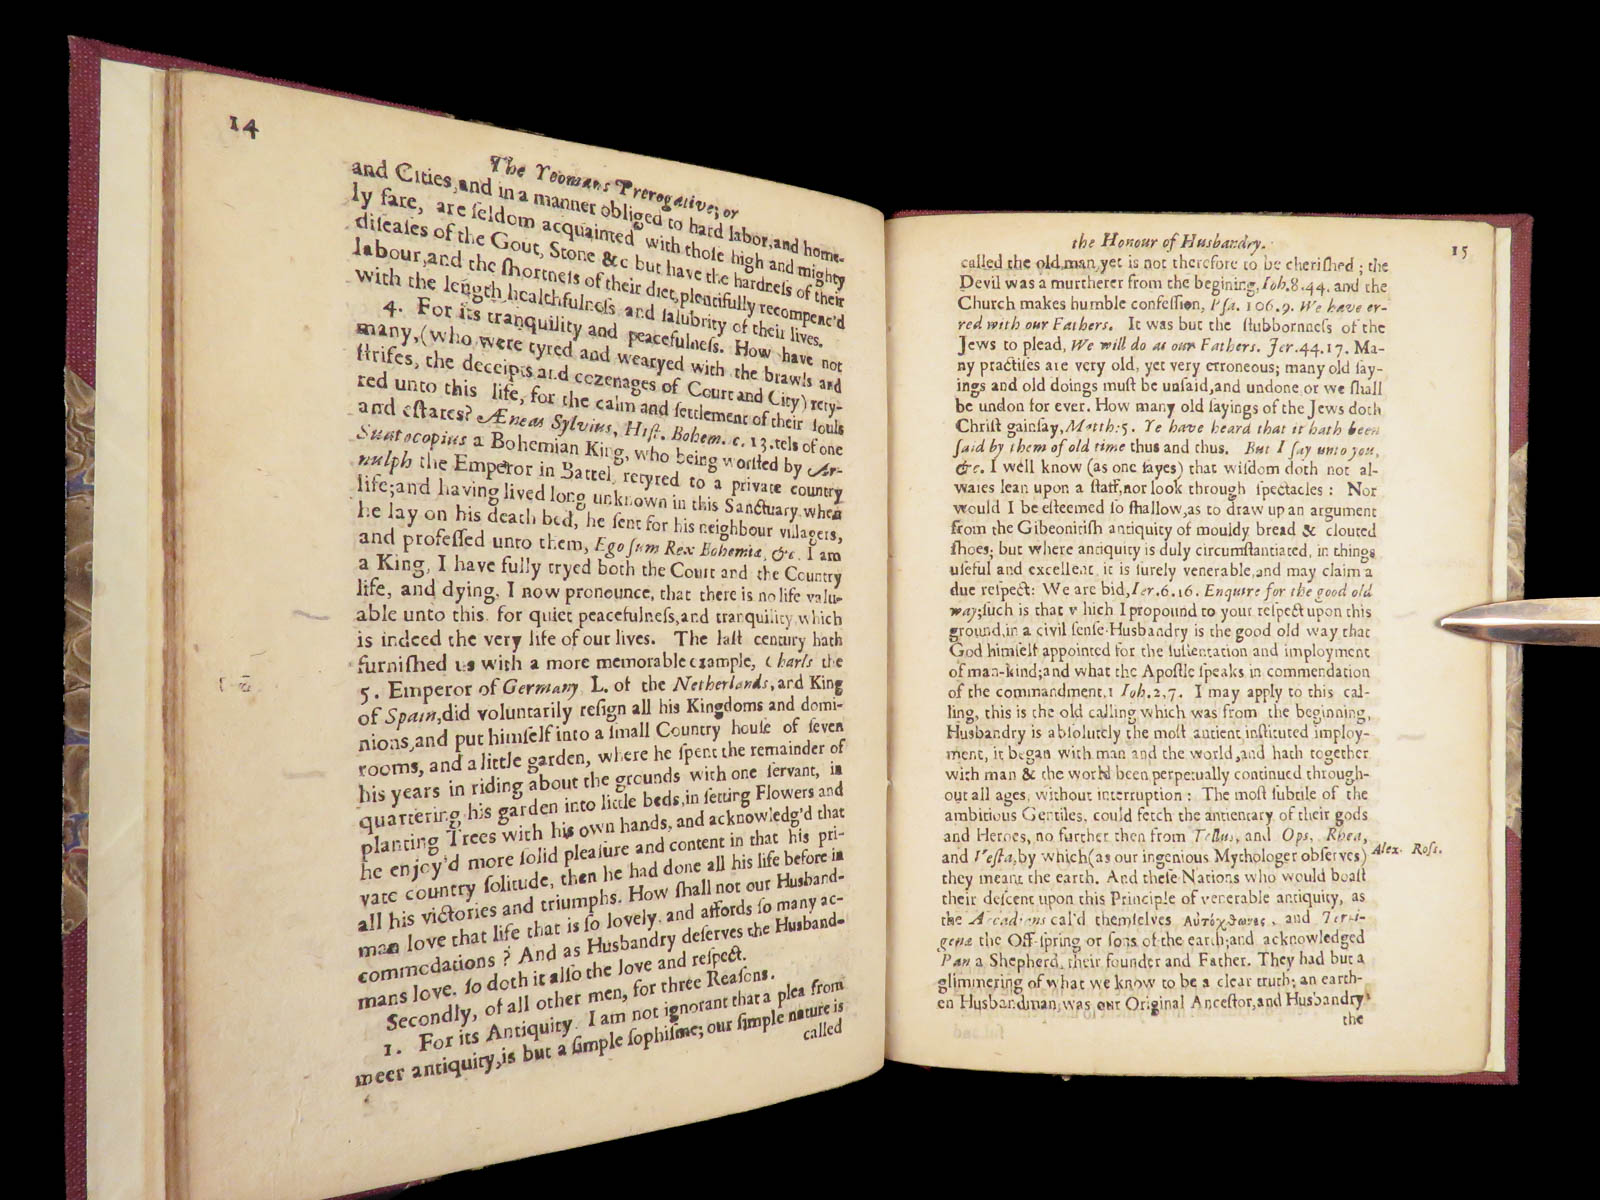 14
The Yeomans Prerogative; or
and Cities, and in a manner obliged to hard labor, and home-
ly fare, are ſeldom acquainted with thoſe high and mighty
diſeaſes of the Gout, Stone &c but have the hardneſs of their
labour, and the ſhortneſs of their diet, plentifully recompenc'd
with the length, healthfulneſs and ſalubrity of their lives.
4. For its tranquility and peacefulneſs. How have not
many, (who were tyred and wearyed with the brawls and
ſtrifes, the deceipts and cozenages of Court and City) rety-
red unto this life, for the calm and ſettlement of their ſouls
and eſtates? Æneas Sylvius, Hiſt. Bohem. c. 13. tels of one
Suatocopius a Bohemian King, who being worſted by Ar-
nulph the Emperor in Battel, retyred to a private country
life; and having lived long unknown in this Sanctuary, when
he lay on his death bed, he ſent for his neighbour villagers,
and profeſſed unto them, Ego ſum Rex Bohemiæ, &c. I am
a King, I have fully tryed both the Court and the Country
life, and dying, I now pronounce, that there is no life valu-
able unto this, for quiet peacefulneſs, and tranquility, which
is indeed the very life of our lives. The laſt century hath
furniſhed us with a more memorable example, Charls the
5. Emperor of Germany, L. of the Netherlands, and King
of Spain, did voluntarily reſign all his Kingdoms and domi-
nions, and put himſelf into a ſmall Country houſe of ſeven
rooms, and a little garden, where he ſpent the remainder of
his years in riding about the grounds with one ſervant, in
quartering his garden into little beds, in ſetting Flowers and
planting Trees with his own hands, and acknowledg'd that
he enjoy'd more ſolid pleaſure and content in that his pri-
vate country ſolitude, then he had done all his life before in
all his victories and triumphs. How ſhall not our Husband-
man love that life that is ſo lovely, and affords ſo many ac-
commodations? And as Husbandry deſerves the Husband-
mans love, ſo doth it alſo the love and reſpect.
Secondly, of all other men, for three Reaſons.
1. For its Antiquity. I am not ignorant that a plea from
meer antiquity, is but a ſimple ſophiſme; our ſimple nature is
called
the Honour of Husbandry.
15
called the old man, yet is not therefore to be cheriſhed; the
Devil was a murtherer from the begining, Joh. 8.44. and the
Church makes humble confeſſion, Pſa. 106.9. We have er-
red with our Fathers. It was but the ſtubbornneſs of the
Jews to plead, We will do as our Fathers. Jer. 44.17. Ma-
ny practiſes are very old, yet very erroneous; many old ſay-
ings and old doings muſt be unſaid, and undone, or we ſhall
be undon for ever. How many old ſayings of the Jews doth
Chriſt gainſay, Matth: 5. Ye have heard that it hath been
ſaid by them of old time thus and thus. But I ſay unto you,
&c. I well know (as one ſayes) that wiſdom doth not al-
waies lean upon a ſtaff, nor look through ſpectacles: Nor
would I be eſteemed ſo ſhallow, as to draw up an argument
from the Gibeonitiſh antiquity of mouldy bread & clouted
ſhoes; but where antiquity is duly circumſtantiated, in things
uſeful and excellent, it is ſurely venerable, and may claim a
due reſpect: We are bid, Ier. 6.16. Enquire for the good old
way; ſuch is that which I propound to your reſpect upon this
ground, in a civil ſenſe. Husbandry is the good old way that
God himſelf appointed for the ſuſtentation and imployment
of man-kind; and what the Apoſtle ſpeaks in commendation
of the commandment, 1 Joh. 2,7. I may apply to this cal-
ling, this is the old calling which was from the beginning,
Husbandry is abſolutely the moſt antient inſtituted imploy-
ment, it began with man and the world, and hath together
with man & the world been perpetually continued through-
out all ages, without interruption: The moſt ſubtile of the
ambitious Gentiles, could fetch the antientary of their gods
and Heroes, no further then from Tellus, and Ops, Rhea,
and Veſta, by which (as our ingenious Mythologer obſerves)
Alex. Roſs.
they meant the earth. And theſe Nations who would boaſt
their deſcent upon this Principle of venerable antiquity, as
the Arcadians cal'd themſelves Αυτόχθωνες, and Terri-
genæ the Off-ſpring or ſons of the earth; and acknowledged
Pan a Shepherd, their founder and Father. They had but a
glimmering of what we know to be a clear truth; an earth-
en Husbandman, was our Original Anceſtor, and Husbandry
the